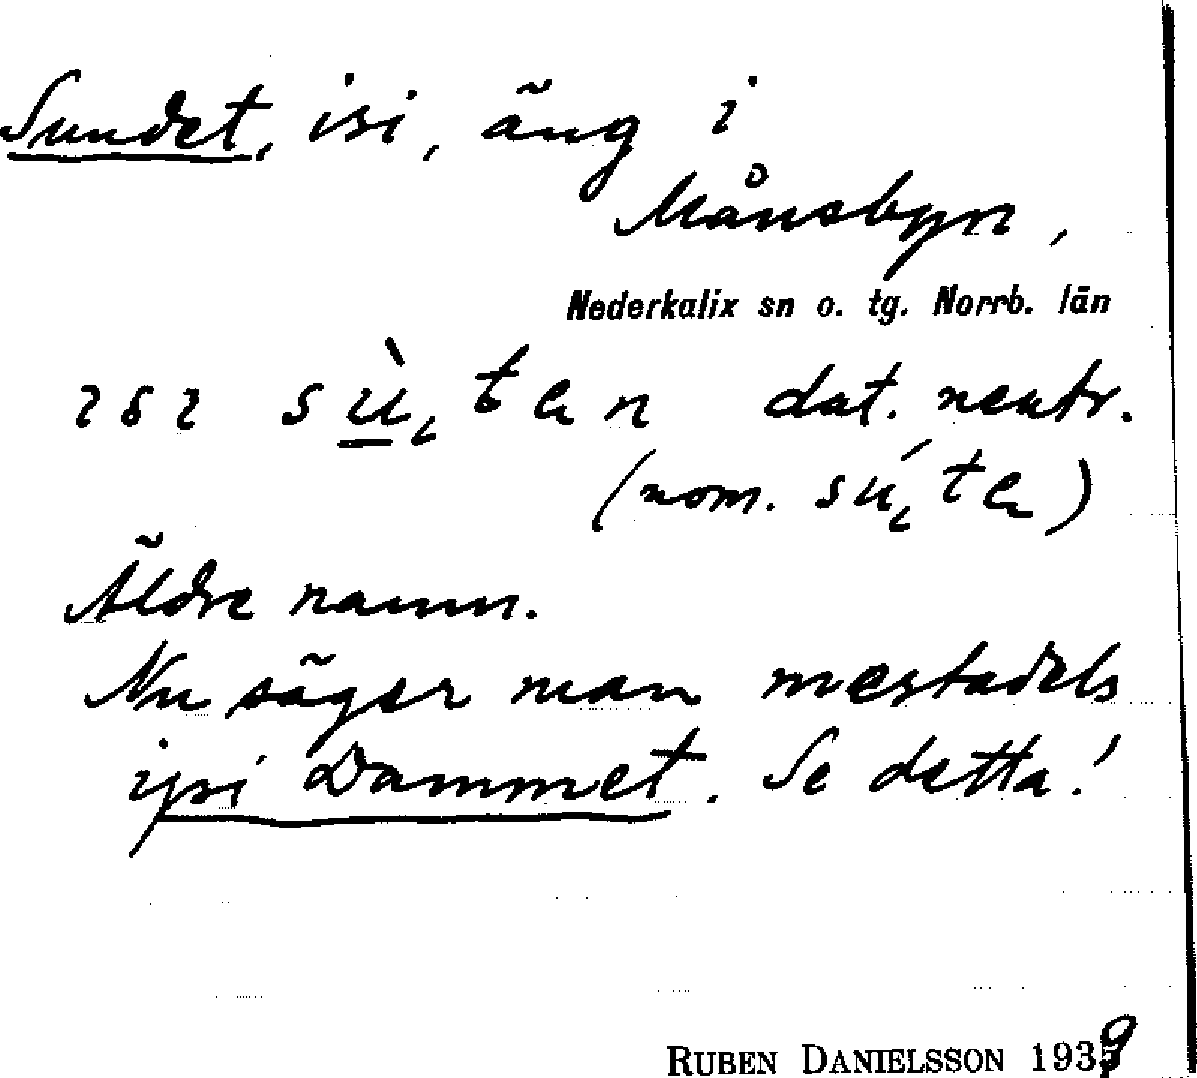 Sundet, isi, äng i
Månsbyn,
Nederkalix sn o. tg. Norrb. län
ısı dat. neutr.
(nom.
Äldre namn.
Nu säger man mestadels
ipsi Dammet. Se detta!
RUBEN DANIELSSON 1939